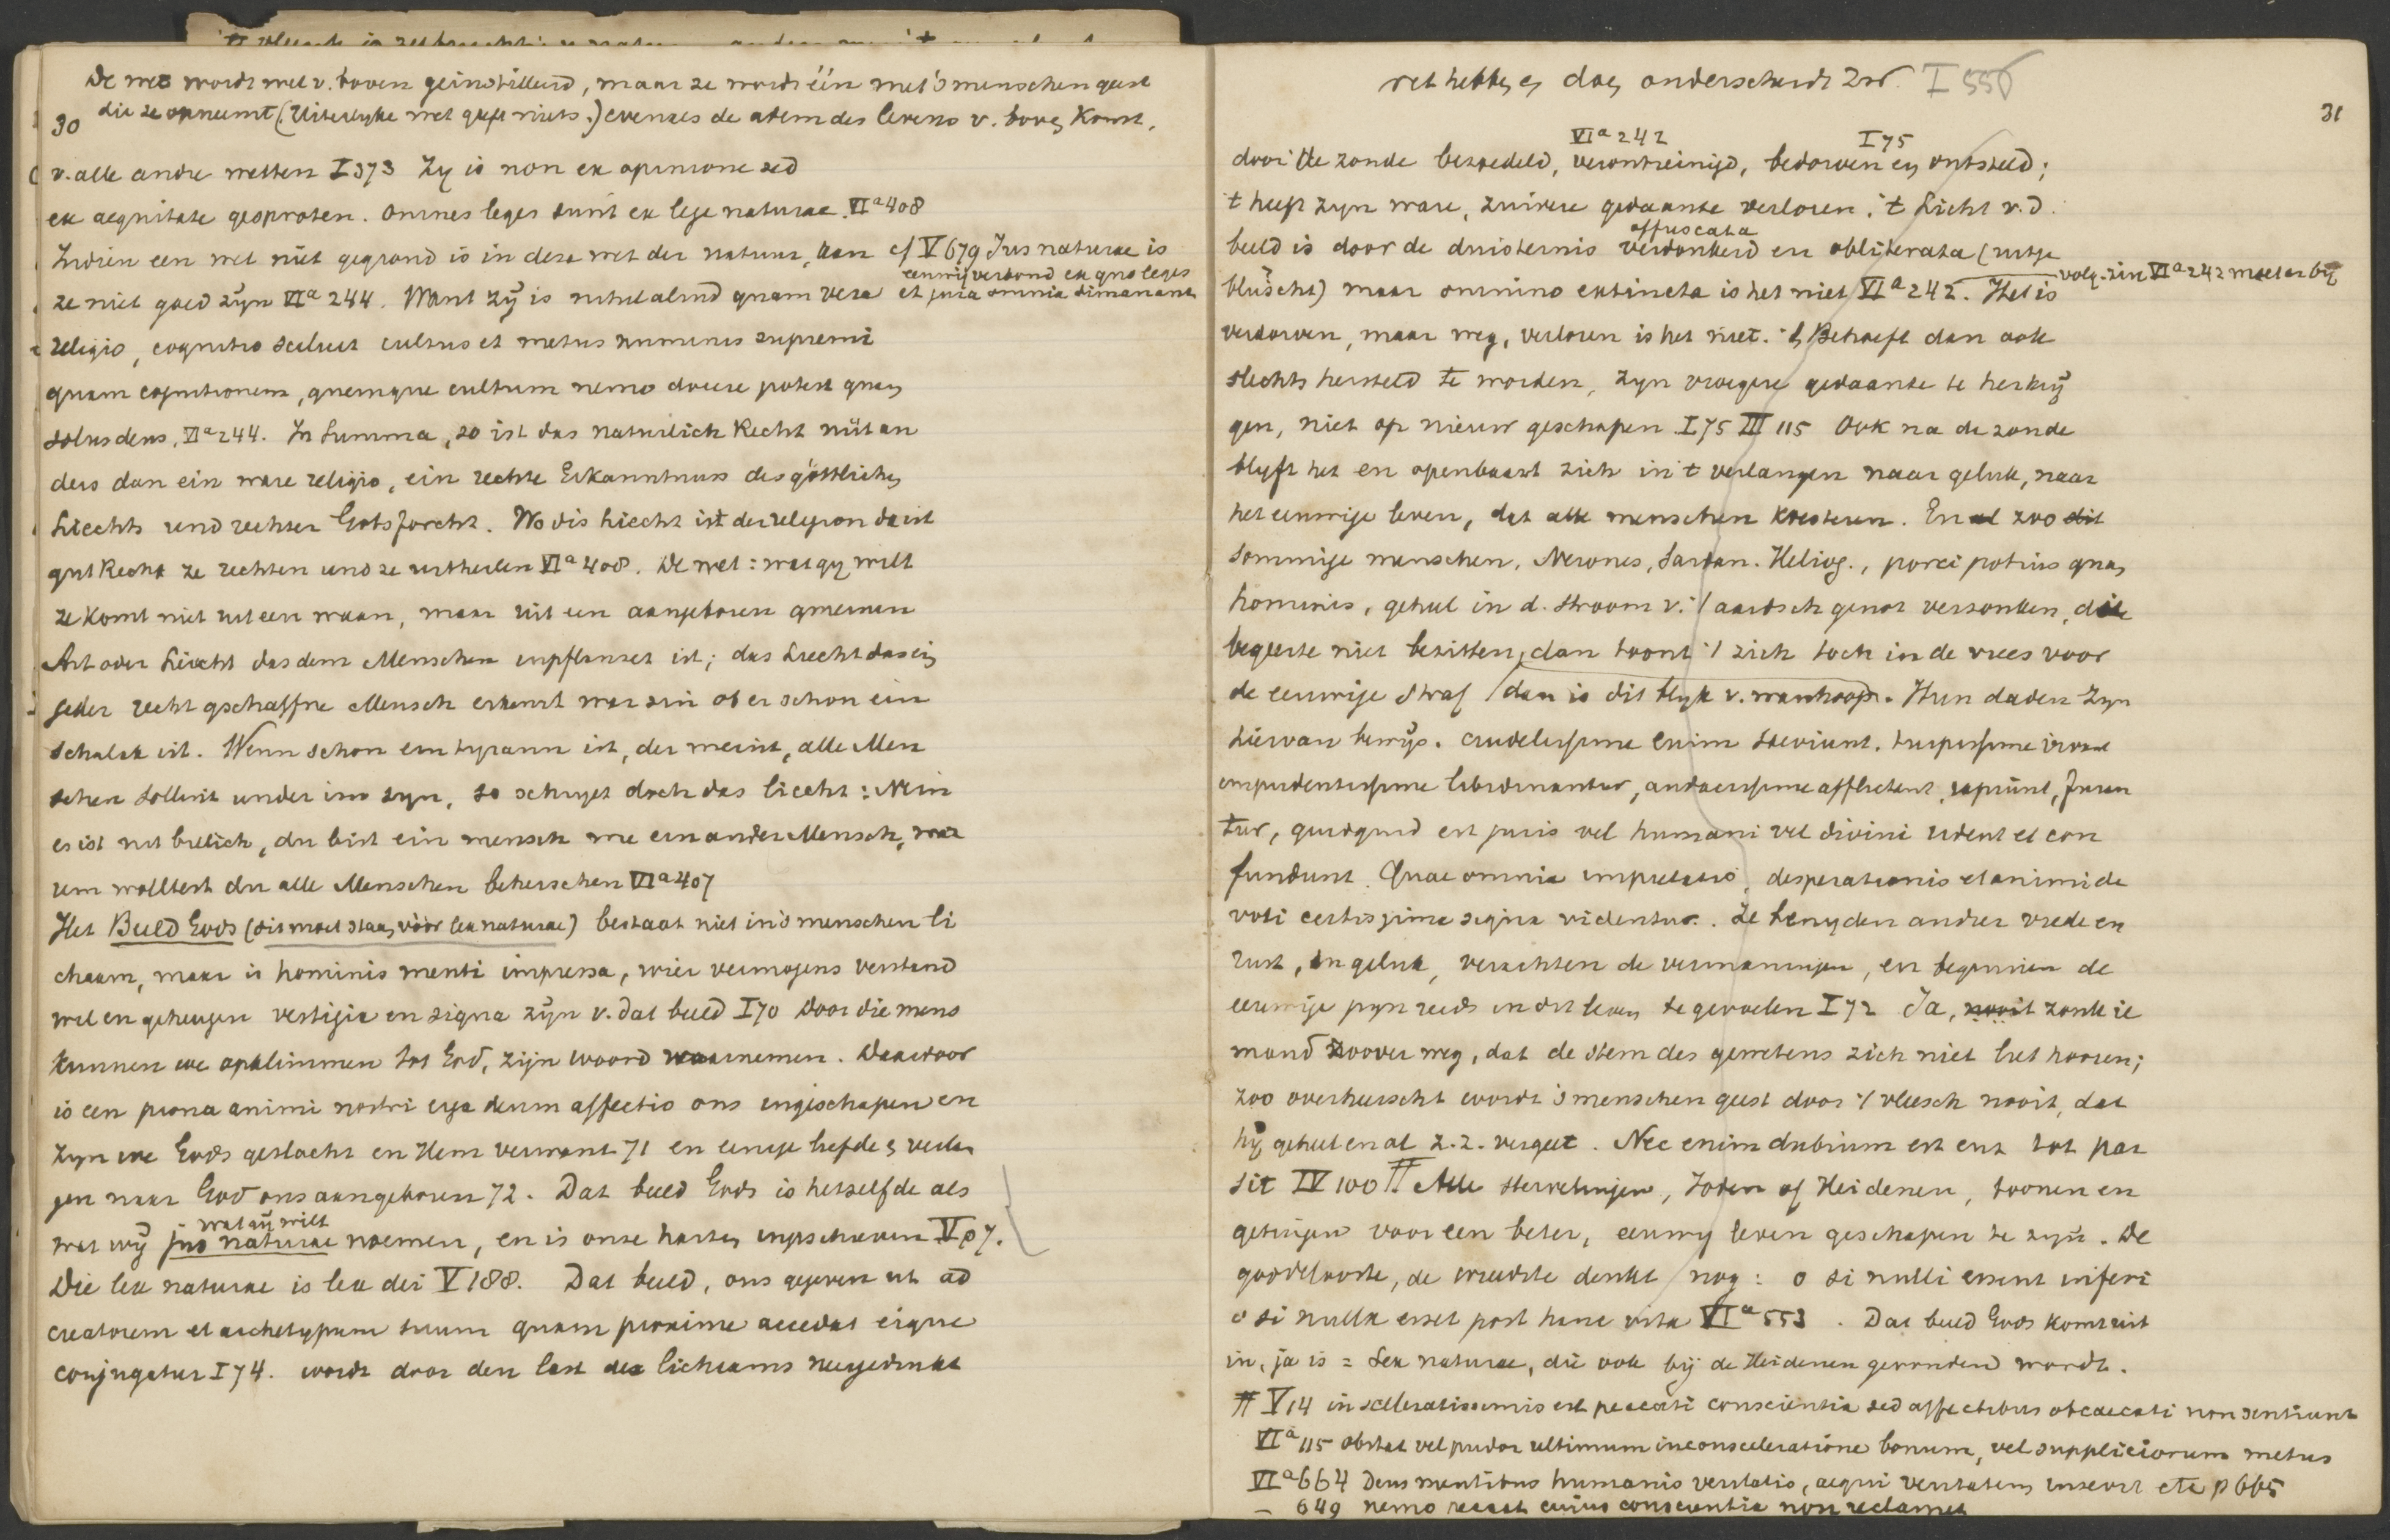 De wet wordt wel v. boven geinstilleerd, maar ze wordt één met 's menschen geest
30 die ze opneemt (Uiterlyke wet geeft niets.) evenals de adem des levens v. boven komt.
v. alle andre wetten I 373 Zy is non ex opinione sed
ex aequitate gesproten. Omnes leges sunt ex lege naturae VIa 408
Indien een wet niet gegrond is in deze wet der natuur, kan cf V 679 Jus naturae is
eeuwig verbond ex quo leges
ze niet goed zijn VIa 244. Want zij is nihil aliud quam vera et jura omnia dimanant
religio, cognitio scilicet cultus et metus numinis supremi
quam cognitionem, quemque cultum nemo docere potest quam
solus deus, VIa 244. In Summa, so ist das naturlich Recht nüt an
ders dan ein ware religio, ein rechte Erkanntnuss des göttlichen
Liechts und rechter Gotsforcht. Wo dis Liecht ist der religion da ist
gut Recht ze rechten und ze urtheilen VIa 408. De wet: wat gy wilt
ze komt niet uit een waan, maar uit een aangeboren gmeinen
Art oder Liecht das dem Menschen inpflanzet ist; das Liecht das ein
jeder recht gschaffne Mensch erkennt war sin ob er schon ein
schalck ist. Wenn schon ein tyrann ist, der meint, alle Men
schen sollint under im syn, so schryet doch das liecht: Nein
es ist nit billich, du bist ein mensch wie ein ander Mensch, war
um wolltest du alle Menschen beherschen VIa 407
Het Beeld Gods (dit moet staan vóór lex naturae) bestaat niet in 's menschen li
chaam, maar is hominis menti impressa, wier vermogens verstand
wil en geheugen vestigia en signa zijn v. dat beeld I 70 Door die mens
kunnen we opklimmen tot God, zijn woord waarnemen. Daardoor
is een prona animi nostri erga deum affectio ons ingeschapen en
zyn we Gods geslacht en Hem verwant 71 en eenige liefde & verlan
gen naar God ons aangeboren 72. Dat beeld Gods is hetzelfde als
wat gij wilt
wat wij jus naturae noemen, en is onze harten ingeschreven V 07.
Die lex naturae is lex dei V 188. Dat beeld, ons gegeven ut ad
creatorem et archetypum suum quam proxime accedat eique
conjugatur I 74. wordt door den last des lichaams neergedrukt
ret hebben en doen onderscheidt Zw. I 556
31
VIa 242 I 75
door de zonde bezoedeld, verontreinigd, bedorven en ontsteld;
't heeft zyn ware, zuivere gedaante verloren, 't Licht v. d.
offuscata
beeld is door de duisternis verdonkerd en obliterata (uitge
bluscht) maar omnino extincta is het niet VIa 242. Het is volg. zin VIa 242 moet er bij
verdorven, maar weg, verloren is het niet. 't Behoeft dan ook
slechts hersteld te worden, zyn vroegere gedaante te herkrij
gen, niet op nieuw geschapen I 75 III 115 Ook na de zonde
blyft het en openbaart zich in 't verlangen naar geluk, naar
het eeuwige leven, dat alle menschen koesteren. En al zoo dit
sommige menschen, Nerones, Sardan. Heliog., porci potius quam
hominis, geheel in d. stroom v. 't aardsch genot verzonken, die
begeerte niet bezitten, dan toont 't zich toch in de vrees voor
de eeuwige straf / dan is dit blyk v. wanhoop. Hun daden zyn
hiervan bewijs. crudelissime enim saeviunt. turpissime
impudentissime libidinantur, audacissime afflictant, rapiunt, furan
tur, quidquid est juris vel humani vel divini rident et con
fundunt. Quae omnia desperationis et animi de
voti certissima signa videntur. Ze benyden andrer vrede en
rust, en geluk, verachten de vermaningen, en beginnen de
eeuwige pyn reeds in dit leven te gevoelen I 72 Ja, nooit zonk ie
mand zoover weg, dat de stem des gewetens zich niet liet hooren;
zoo overheerscht wordt 's menschen geest door 't vleesch nooit, dat
hij geheel en al z. z. vergeet. Nec enim dubium est
sit IV 100 # Alle stervelingen, Joden of Heidenen, toonen en
getuigen voor een beter, eeuwig leven geschapen te zijn. De
goddelooste, de wreedste denkt nog: o si nulli essent inferi
o si nulla esset post hanc vita VIa 553. Dat beeld Gods komt uit
in, ja is = Lex naturae, die ook bij de Heidenen gevonden wordt.
# V 14 in sceleratissimis est peccati conscientia sed affectibus obcaecati non sentiunt
VIa 115 obstat vel pudor ultimum in consceleratione bonum, vel suppliciorum metus
VIa 664 Deus mentibus humanis veritatis, aequi veritatem inseruit etc p 665
— 649 nemo cuius conscientia non reclamet